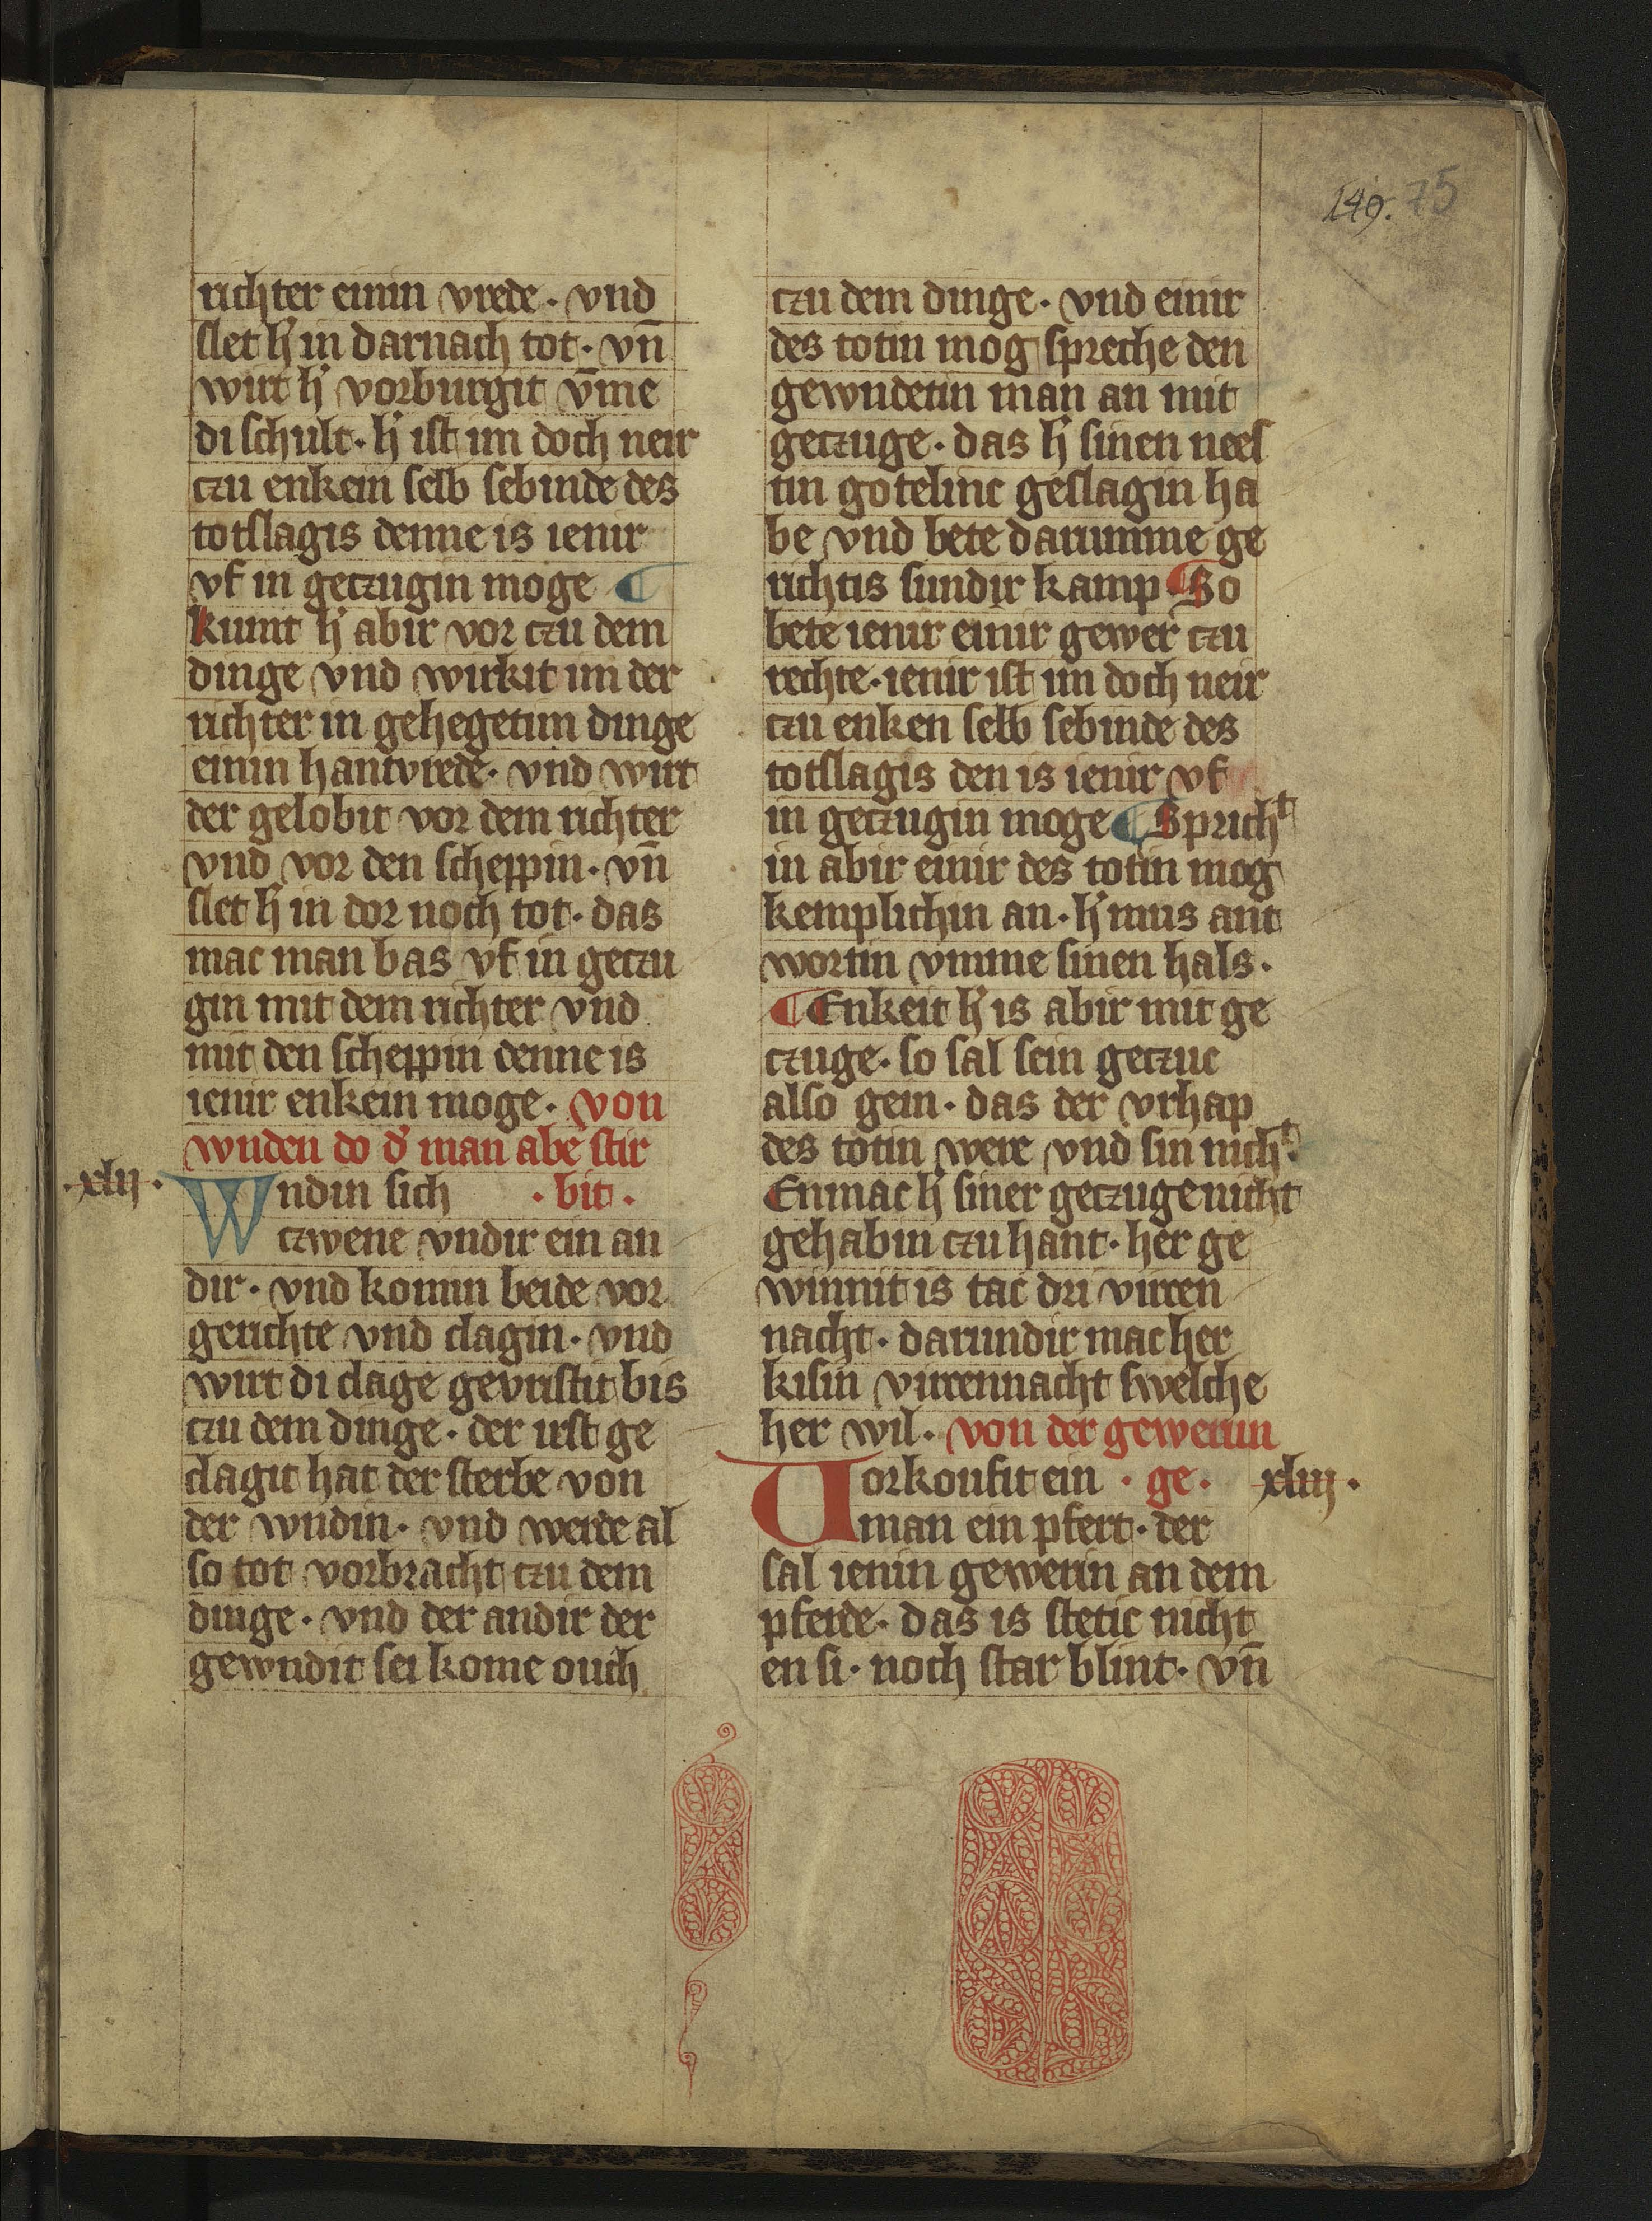 149. 75
richter einin vrede · vnd
slet h' in darnach tot · vn̄
wirt h' vorburgit v̄me
di schult · h' ist im doch neir
czu enkein selb sebinde des
totslagis denne is ienir
vf in geczugin moge ¶
kumt h' abir vor czu dem
dinge vnd wirkit im der
richter in gehegetim dinge
einin hantvrede · vnd wirt
der gelobit vor dem richter
vnd vor den scheppin · vn̄
slet h' in dor noch tot · das
mac man bas vf in geczu
gin mit dem richter vnd
mit den scheppin denne is
ienir enkein moge · von
wnden do d' man abe stir
· xlij ·
Wndin sich · bit ·
czwene vndir ein an
dir · vnd komin beide vor
gerichte vnd clagin · vnd
wirt di clage gevristit bis
czu dem dinge · der irst ge
clagit hat der sterbe von
der wndin · vnd werde al
so tot vorbracht czu dem
dinge · vnd der andir der
gewndit sei kome ouch
czu dem dinge · vnd einir
des totin mog spreche den
gewndetin man an mit
geczuge · das h' sinen nees
tin gotelinc geslagin ha
be vnd bete darumme ge
richtis sundir kamp ¶ So
bete ienir einir gewer czu
rechte · ienir ist im doch neir
czu enken selb sebinde des
totslagis den is ienir vf
in geczugin moge ¶ Spricht
in abir einir des totin mog
kemplichin an · h' mus ant
wortin vmme sinen hals ·
¶ Enkeit h' is abir mit ge
czuge · so sal sein geczuc
also gein · das der vrhap
des totin were vnd sin nicht ·
Enmac h' siner geczuge nicht
gehabin czu hant · her ge
winnit is tac dri virczen
nacht · darundir mac her
kisin virczennacht swelche
her wil · von der gewerun
Vorkoufit ein · ge · xliij ·
man ein pfert · der
sal ienin gewerin an dem
pferde · das is stetic nicht
en si · noch star blint · vn̄